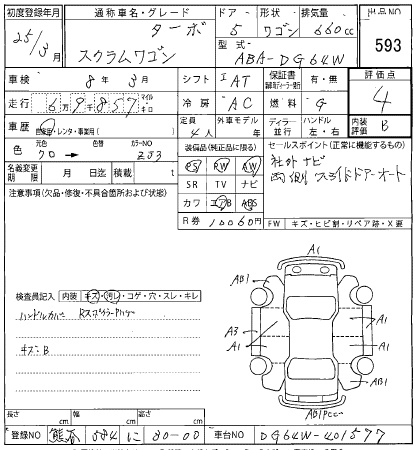 初度登録年月 通称車名・グレード ドア 形状 排気量 出品NO
25/3月 ターボ 5 ワゴン 660cc 593
スクラムワゴン 型式 ABA-DG64W
車検 8年3月 シフト IAT 保証書 有・無 評価点
走行 6万9千857 マイル キロ 冷房 AC 燃料 G 4
車歴 自家用・レンタ・事業用( ) 定員 4人 外車モデル 年 ディーラー 並行 ハンドル 左・右 内装評価 B
色 元色 クロ → 色替 カラーNO ZJ3
装備品(純正品に限る) セールスポイント(正常に機能するもの)
名義変更期限 月 日迄 積載 t
PS AW PW 社外ナビ
SR TV ナビ 両側スライドドアーオート
カワ エアB ABS
R券 10060円 FW キズ・ヒビ割・リペア跡・X要
注意事項(欠品・修復・不具合箇所および状態)
検査員記入 内装 キズ・汚レ・コゲ・穴・スレ・キレ
ハンドルカバー
キズ:B
A1
AB1
A3 A1
A1 A1
AB1
長さ cm 幅 cm 高さ cm
登録NO 熊谷 584 に 80-00 車台NO DG64W-401577